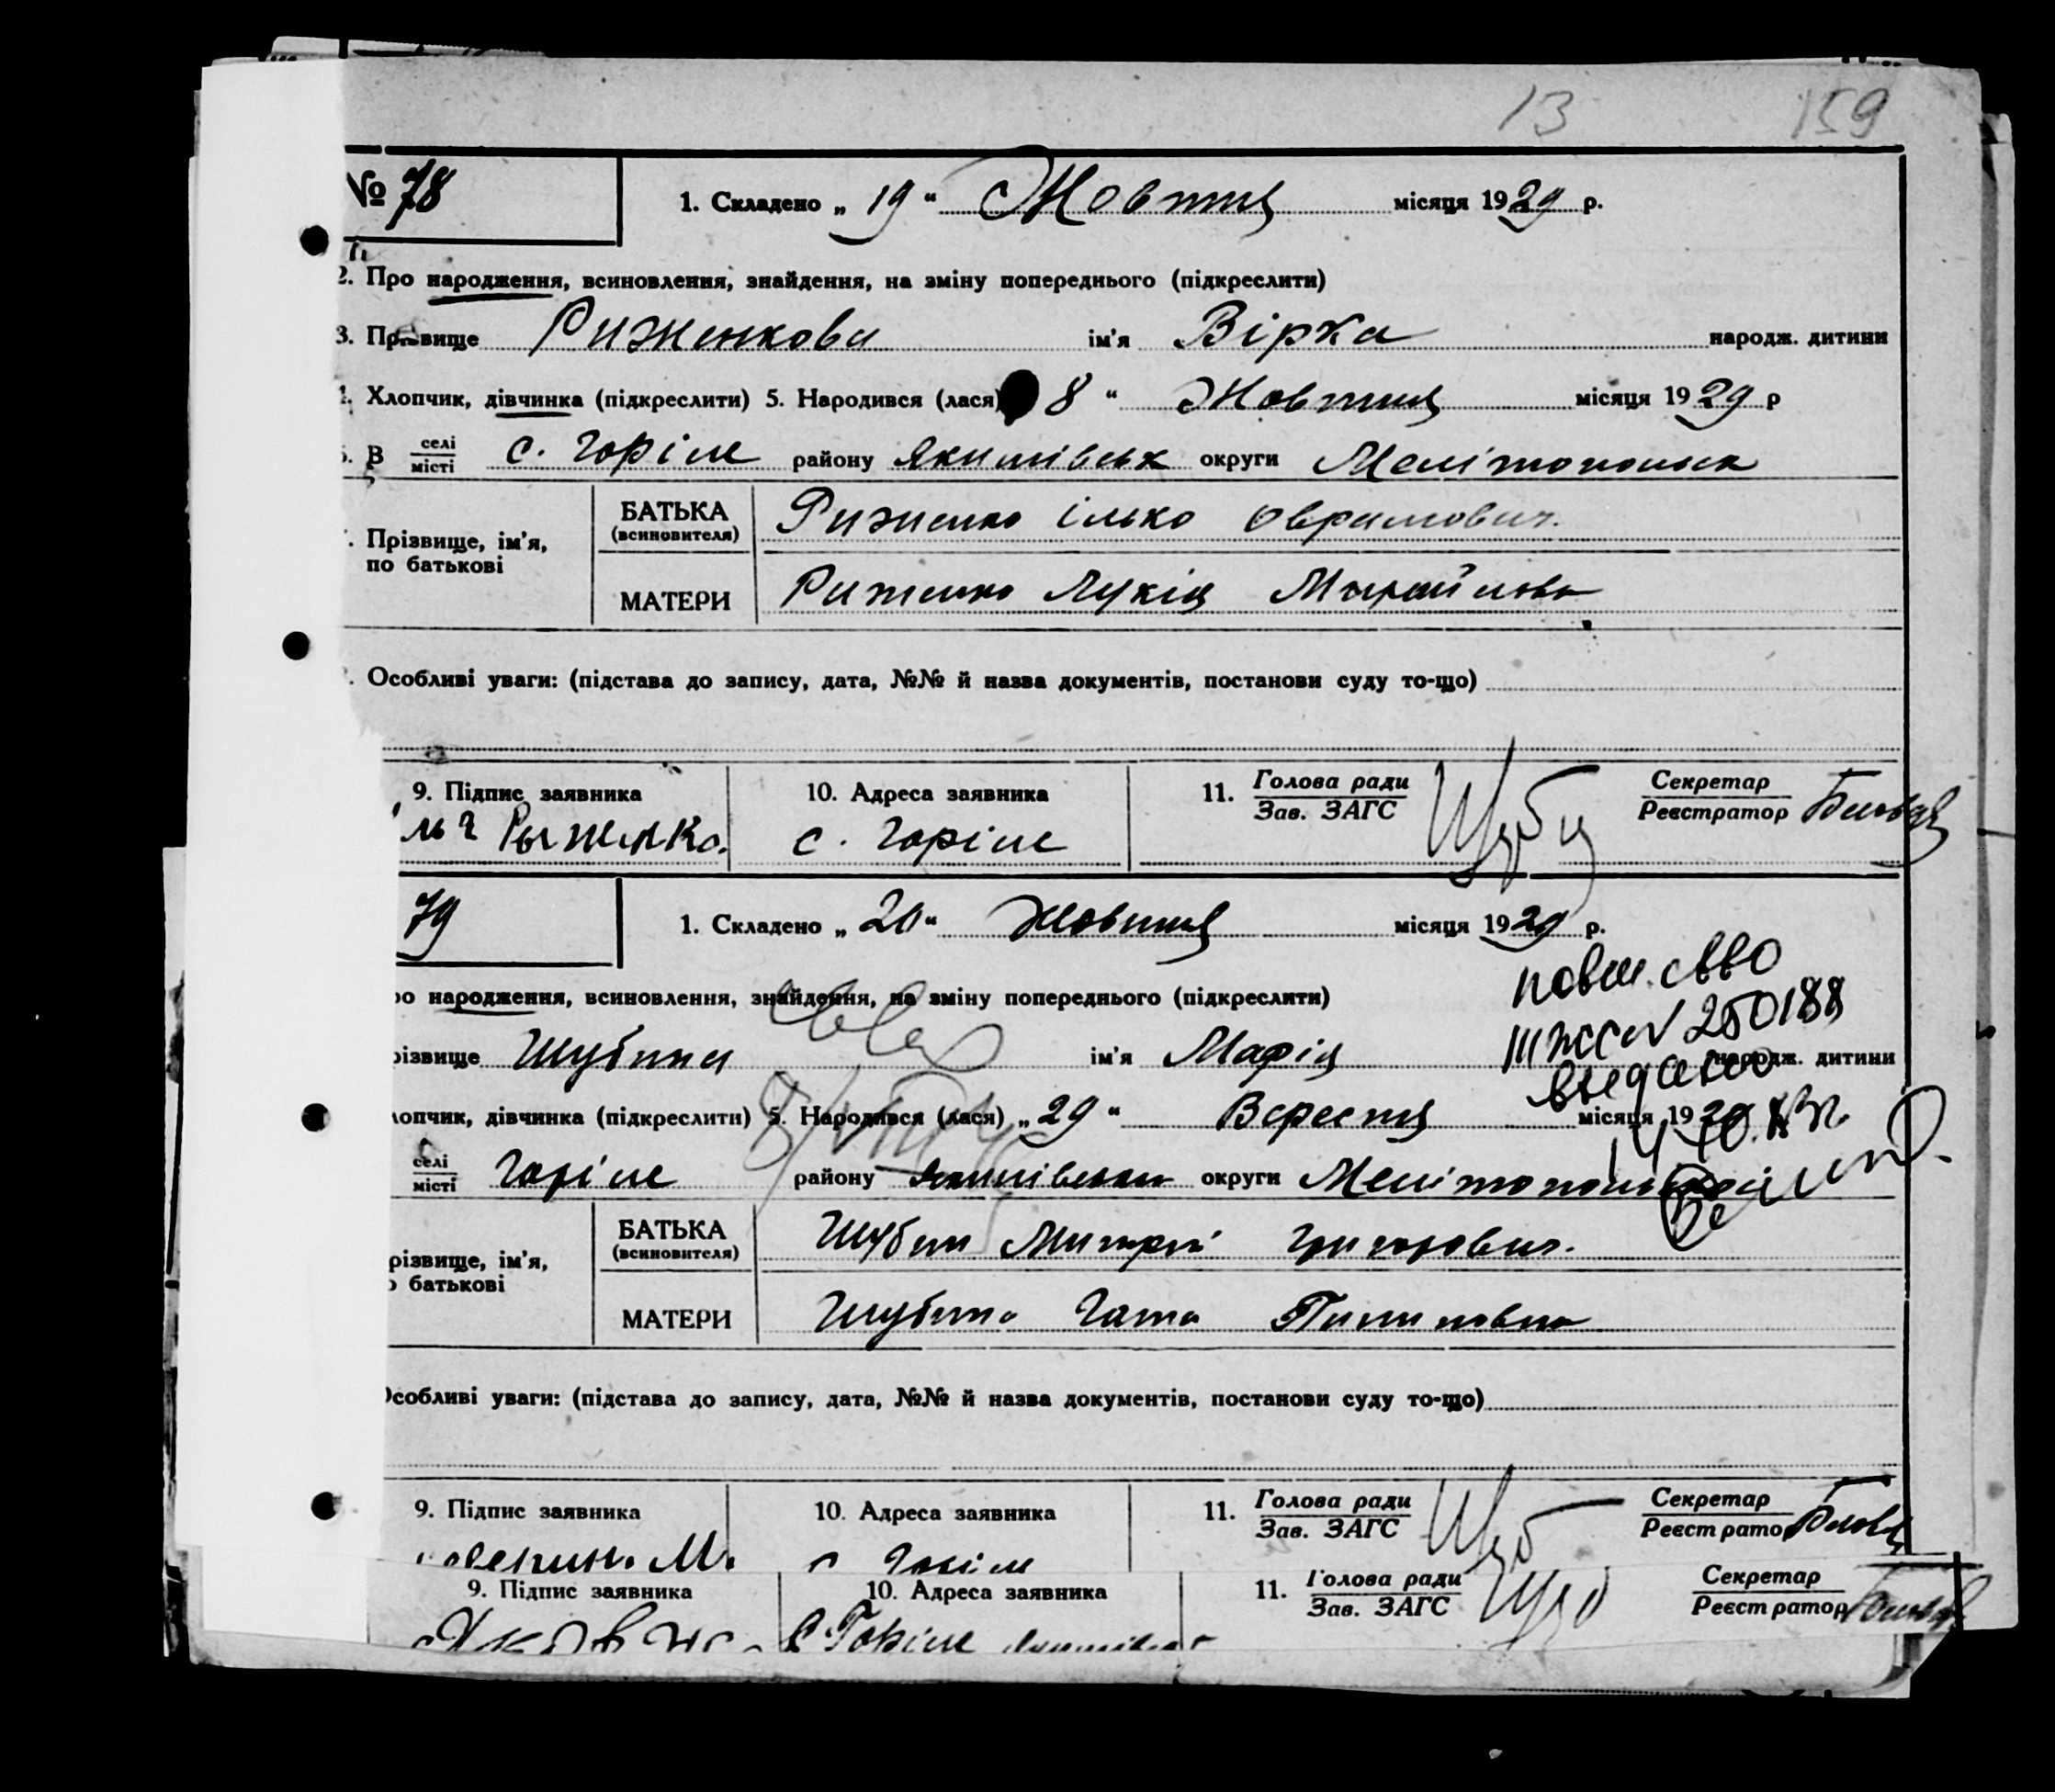 13 159
№ 78 1. Складено „ 19 “ Жовтня місяця 1929 р.
2. Про народження, всиновлення, знайдення, на зміну попереднього (підкреслити)
3. Прізвище Риженкова ім’я Вірка народж. дитини
Хлопчик, дівчинка (підкреслити) 5. Народився (лася) 8 “ Жовтня місяця 1929 р
В селі/місті с. Горіле району Якимівськ округи Мелітопольск
Прізвище, ім’я, по батькові
БАТЬКА (всиновителя) Риженко Ілько Оврамович.
МАТЕРИ Риженко Лукія Михайлова
Особливі уваги: (підстава до запису, дата, №№ й назва документів, постанови суду то-що)
9. Підпис заявника 10. Адреса заявника 11. Голова ради/Зав. ЗАГС Секретар/Реєстратор
Рыженко. с. Горіле
79 1. Складено „ 20 “ Жовтня місяця 1929 р.
повт. св-во
ро народження, всиновлення, знайдення, на зміну попереднього (підкреслити)
III ЖС № 250188
різвище Шубина ім’я Марія народж. дитини
выдано
лопчик, дівчинка (підкреслити) 5. Народився (лася) „ 29 “ Вересня місяця 1929
селі/місті Горіле району Якимівськ округи Мелітопольской
різвище, ім’я, о батькові
БАТЬКА (всиновителя) Шубин Митрій Григорович.
МАТЕРИ Шубина Гапа Пилиповна
Особливі уваги: (підстава до запису, дата, №№ й назва документів, постанови суду то-що)
9. Підпис заявника 10. Адреса заявника 11. Голова ради/Зав. ЗАГС Секретар/Реєстрато
М. с Горіле
9. Підпис заявника 10. Адреса заявника 11. Голова ради/Зав. ЗАГС Секретар/Реєстратор
с Горіле